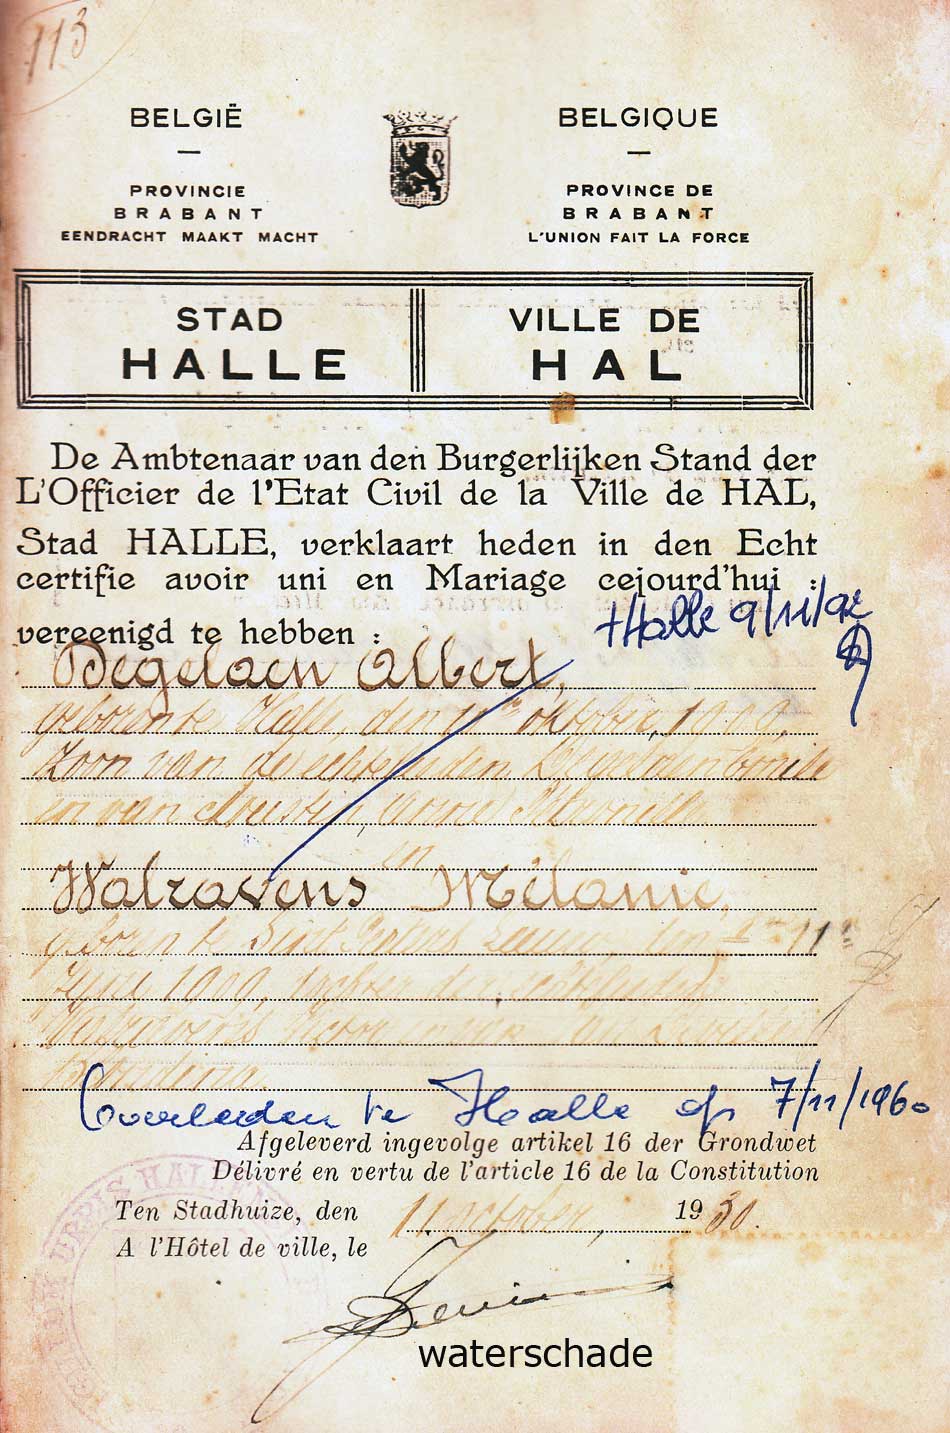 113
BELGIË
PROVINCIE
BRABANT
EENDRACHT MAAKT MACHT
BELGIQUE
PROVINCE DE
BRABANT
L'UNION FAIT LA FORCE
STAD
HALLE
VILLE DE
HAL
De Ambtenaar van den Burgerlijken Stand der
L'Officier de l'Etat Civil de la Ville de HAL,
Stad HALLE, verklaart heden in den Echt
certifie avoir uni en Mariage cejourd'hui :
vereenigd te hebben :
+Halle 9/11/92
Degelaen Albert,
geboren te Halle, den 11 oktober, 1909,
zoon van de echtelieden Degelaen
en van Anna Petronilla
en
Walravens Mélanie,
geboren te Sint Pieters Leeuw, den 11
Juni 1909, dochter der echtelieden
Walravens en van
Overleden te Halle op 7/11/1960
Afgeleverd ingevolge artikel 16 der Grondwet
Délivré en vertu de l'article 16 de la Constitution
Ten Stadhuize, den 11 october, 1930.
A l'Hôtel de ville, le
waterschade